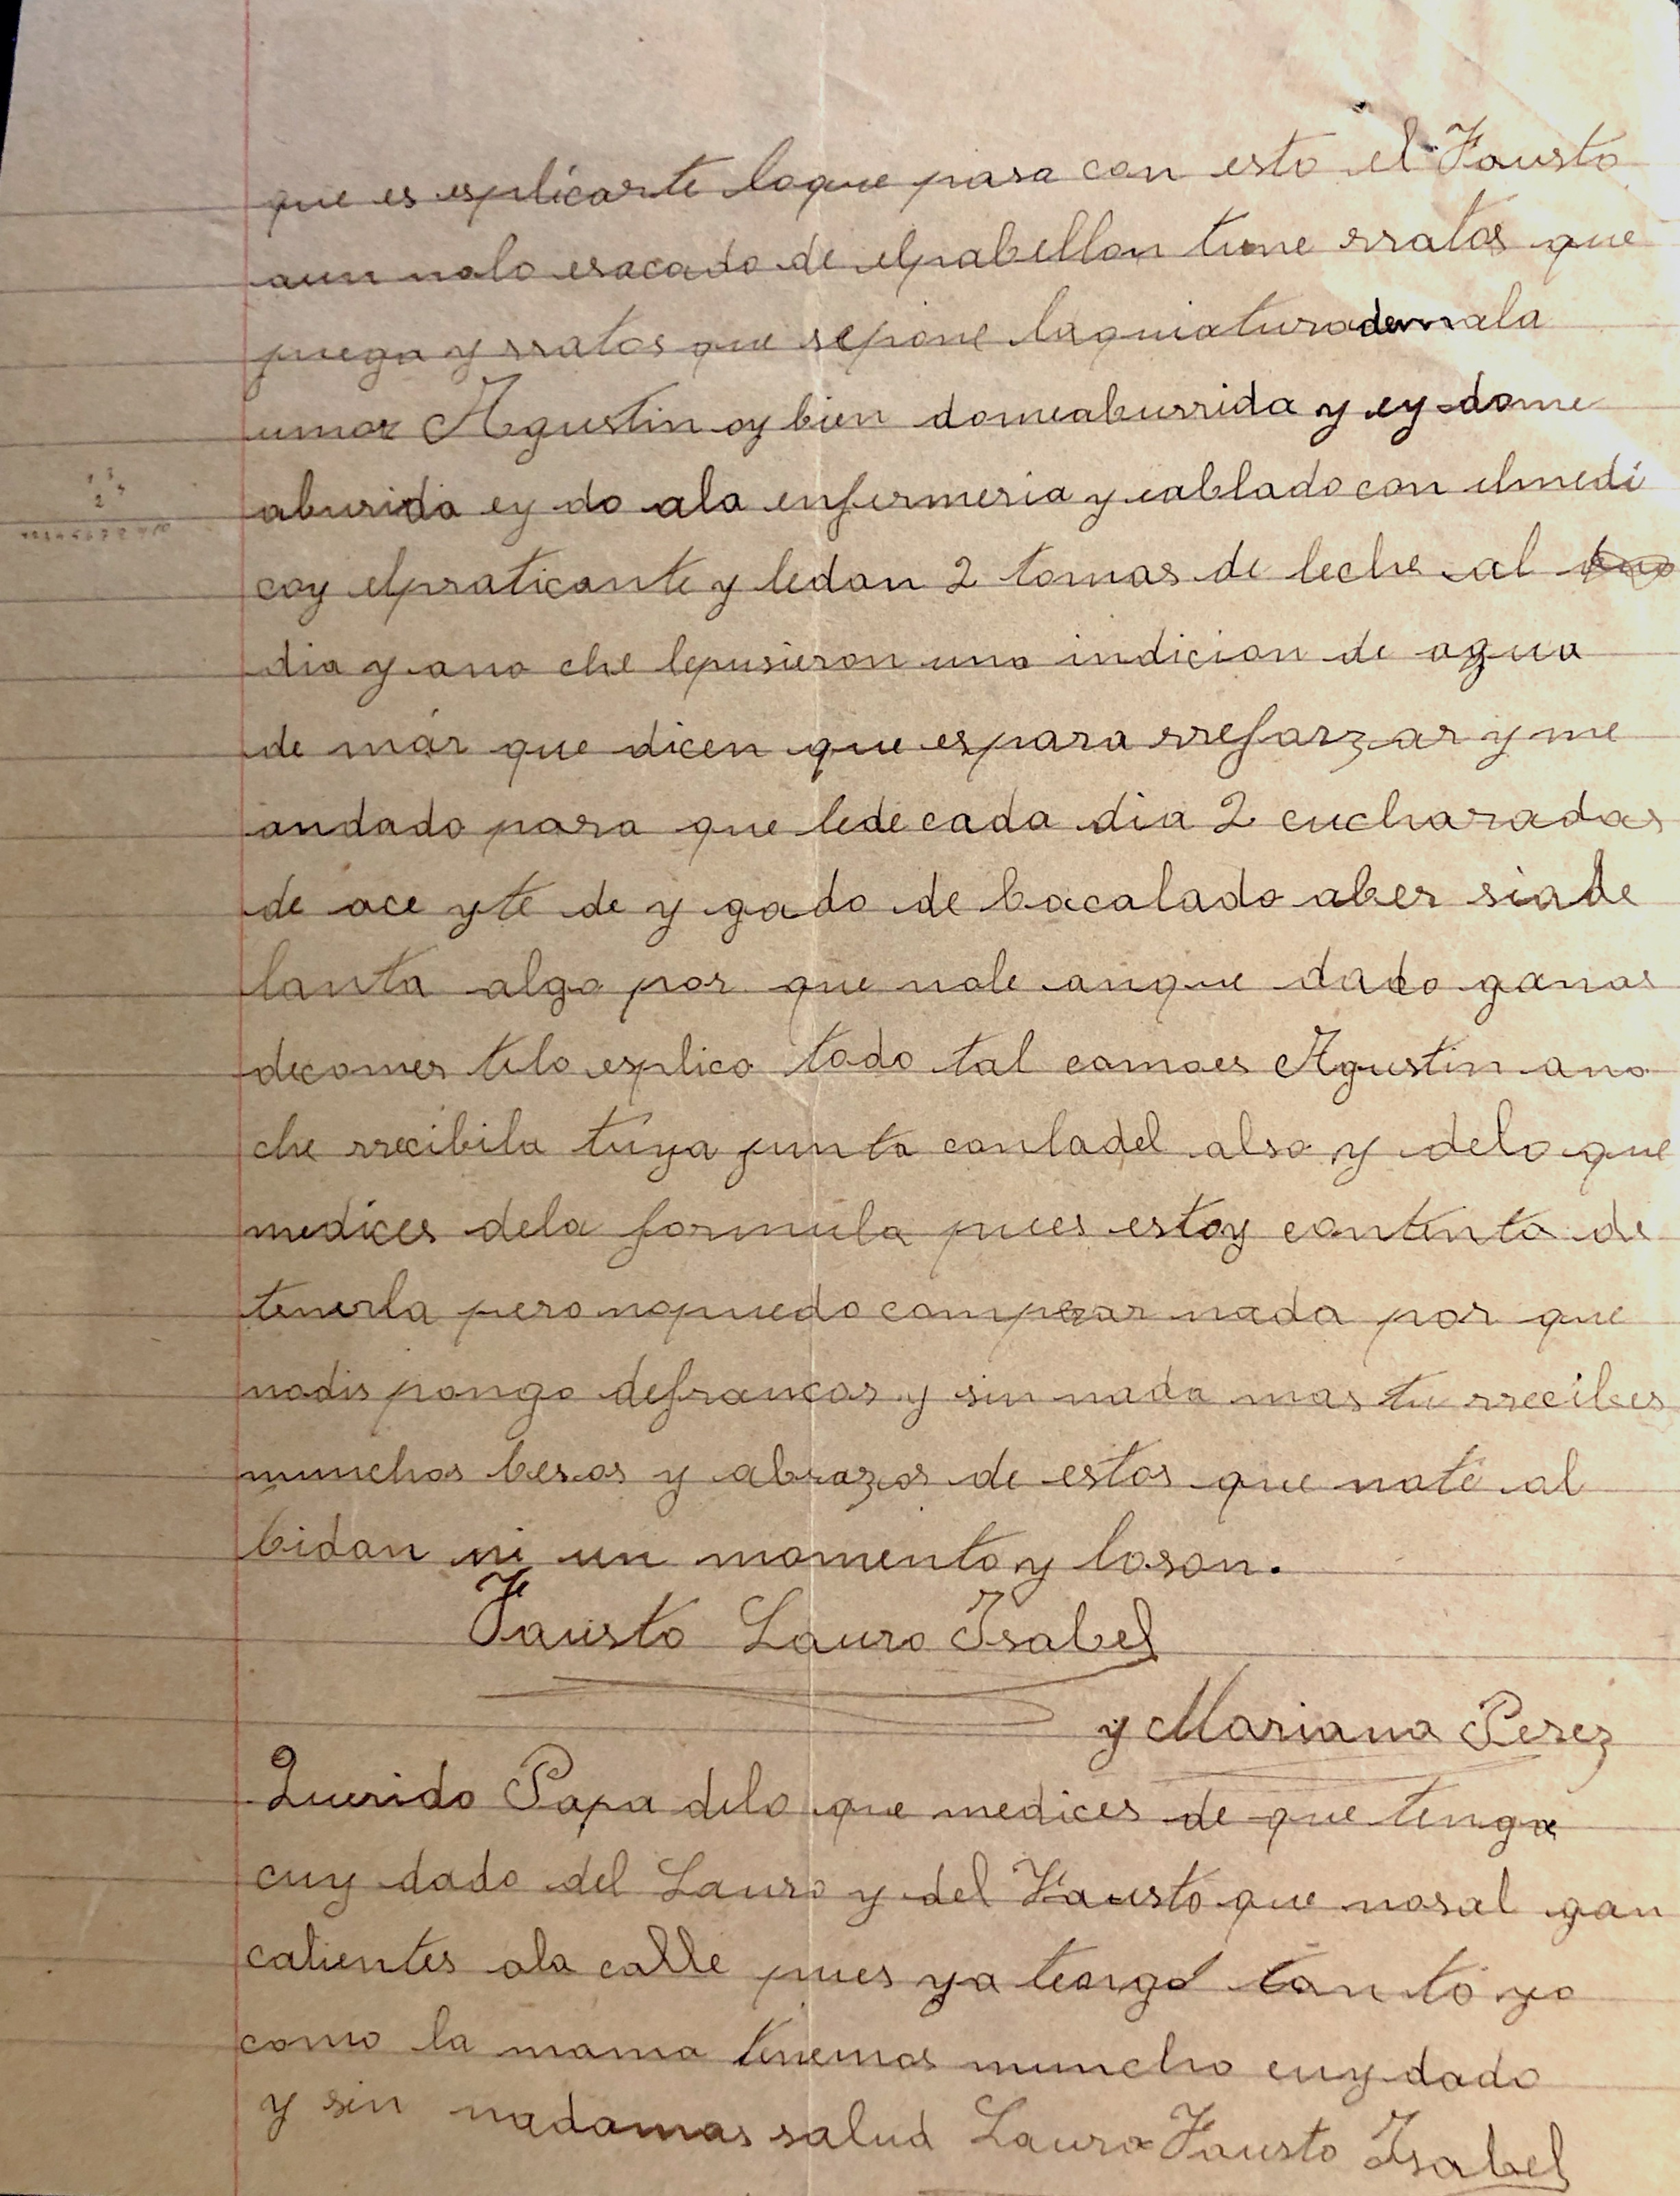 que es esplicarte loque pasa con esto el Fausto
aun nolo esacado de elpabellon tiene rratos que
juega y rratos que sepone laquiatura demala
umor Agustin oy bien domeaburrida y ey dome
aburida ey do ala enfermeria y eablado con elmedi
coy elpraticante y ledan 2 tomas de leche al
dia y ano che lepusieron una indicion de agua
de már que dicen que espara rreforzar y me
andado para que lede cada dia 2 cucharadas
de ace yte de y gado de bacalado aber siade
lanta algo por que nole anque dado ganas
decomer telo esplico todo tal comoes Agustin ano
che rrecibila tuya junta conladel also y delo que
medices dela formula pues estoy contenta de
tenerla pero nopuedo comprar nada por que
nodis pongo defrancos y sin nada mas tu rrecibes
munchos besos y abrazos de estos que noté al
bidan ni un momento y loson.
Fausto Lauro Isabel
y Mariana Perez
Querido Papa delo que medices de que tenga
cuy dado del Lauro y del Fausto que nosal gan
calientes ala calle pues ya tengo tanto yo
como la mama tenemos muncho cuy dado
y sin nadamas salud Lauro Fausto Isabel